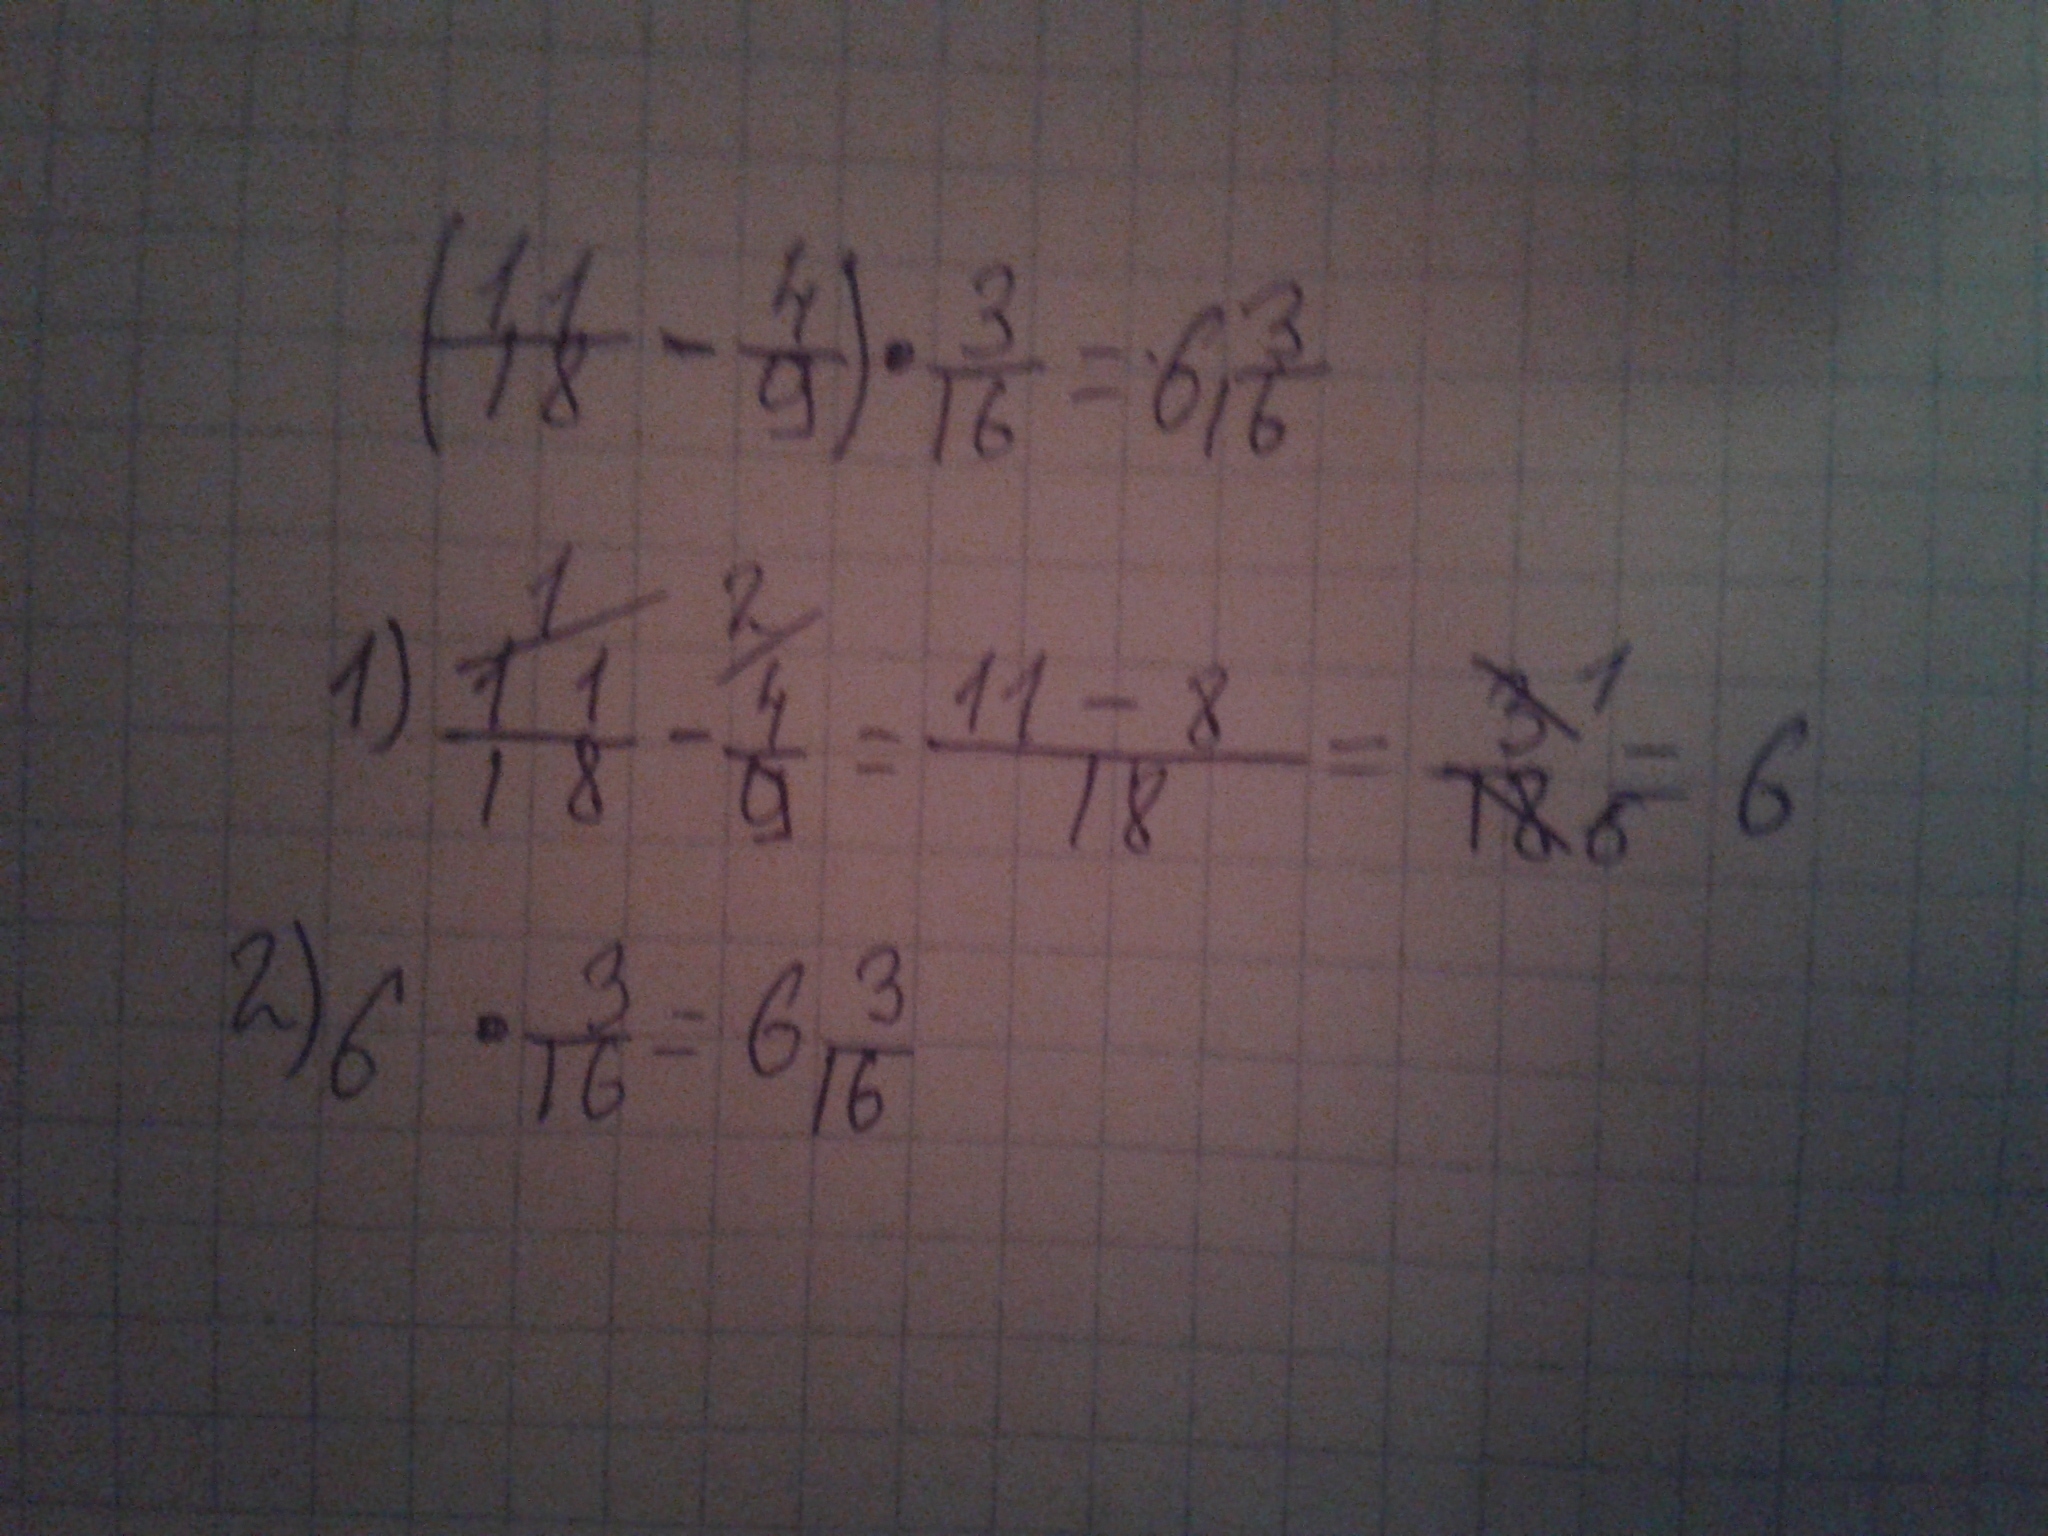 (11/18 - 4/9) · 3/16 = 6 3/16
1) 11/18 (1/ - 4/9 (2/ = 11 - 8/18 = 3/18 1/6 = 6
2) 6 · 3/16 = 6 3/16